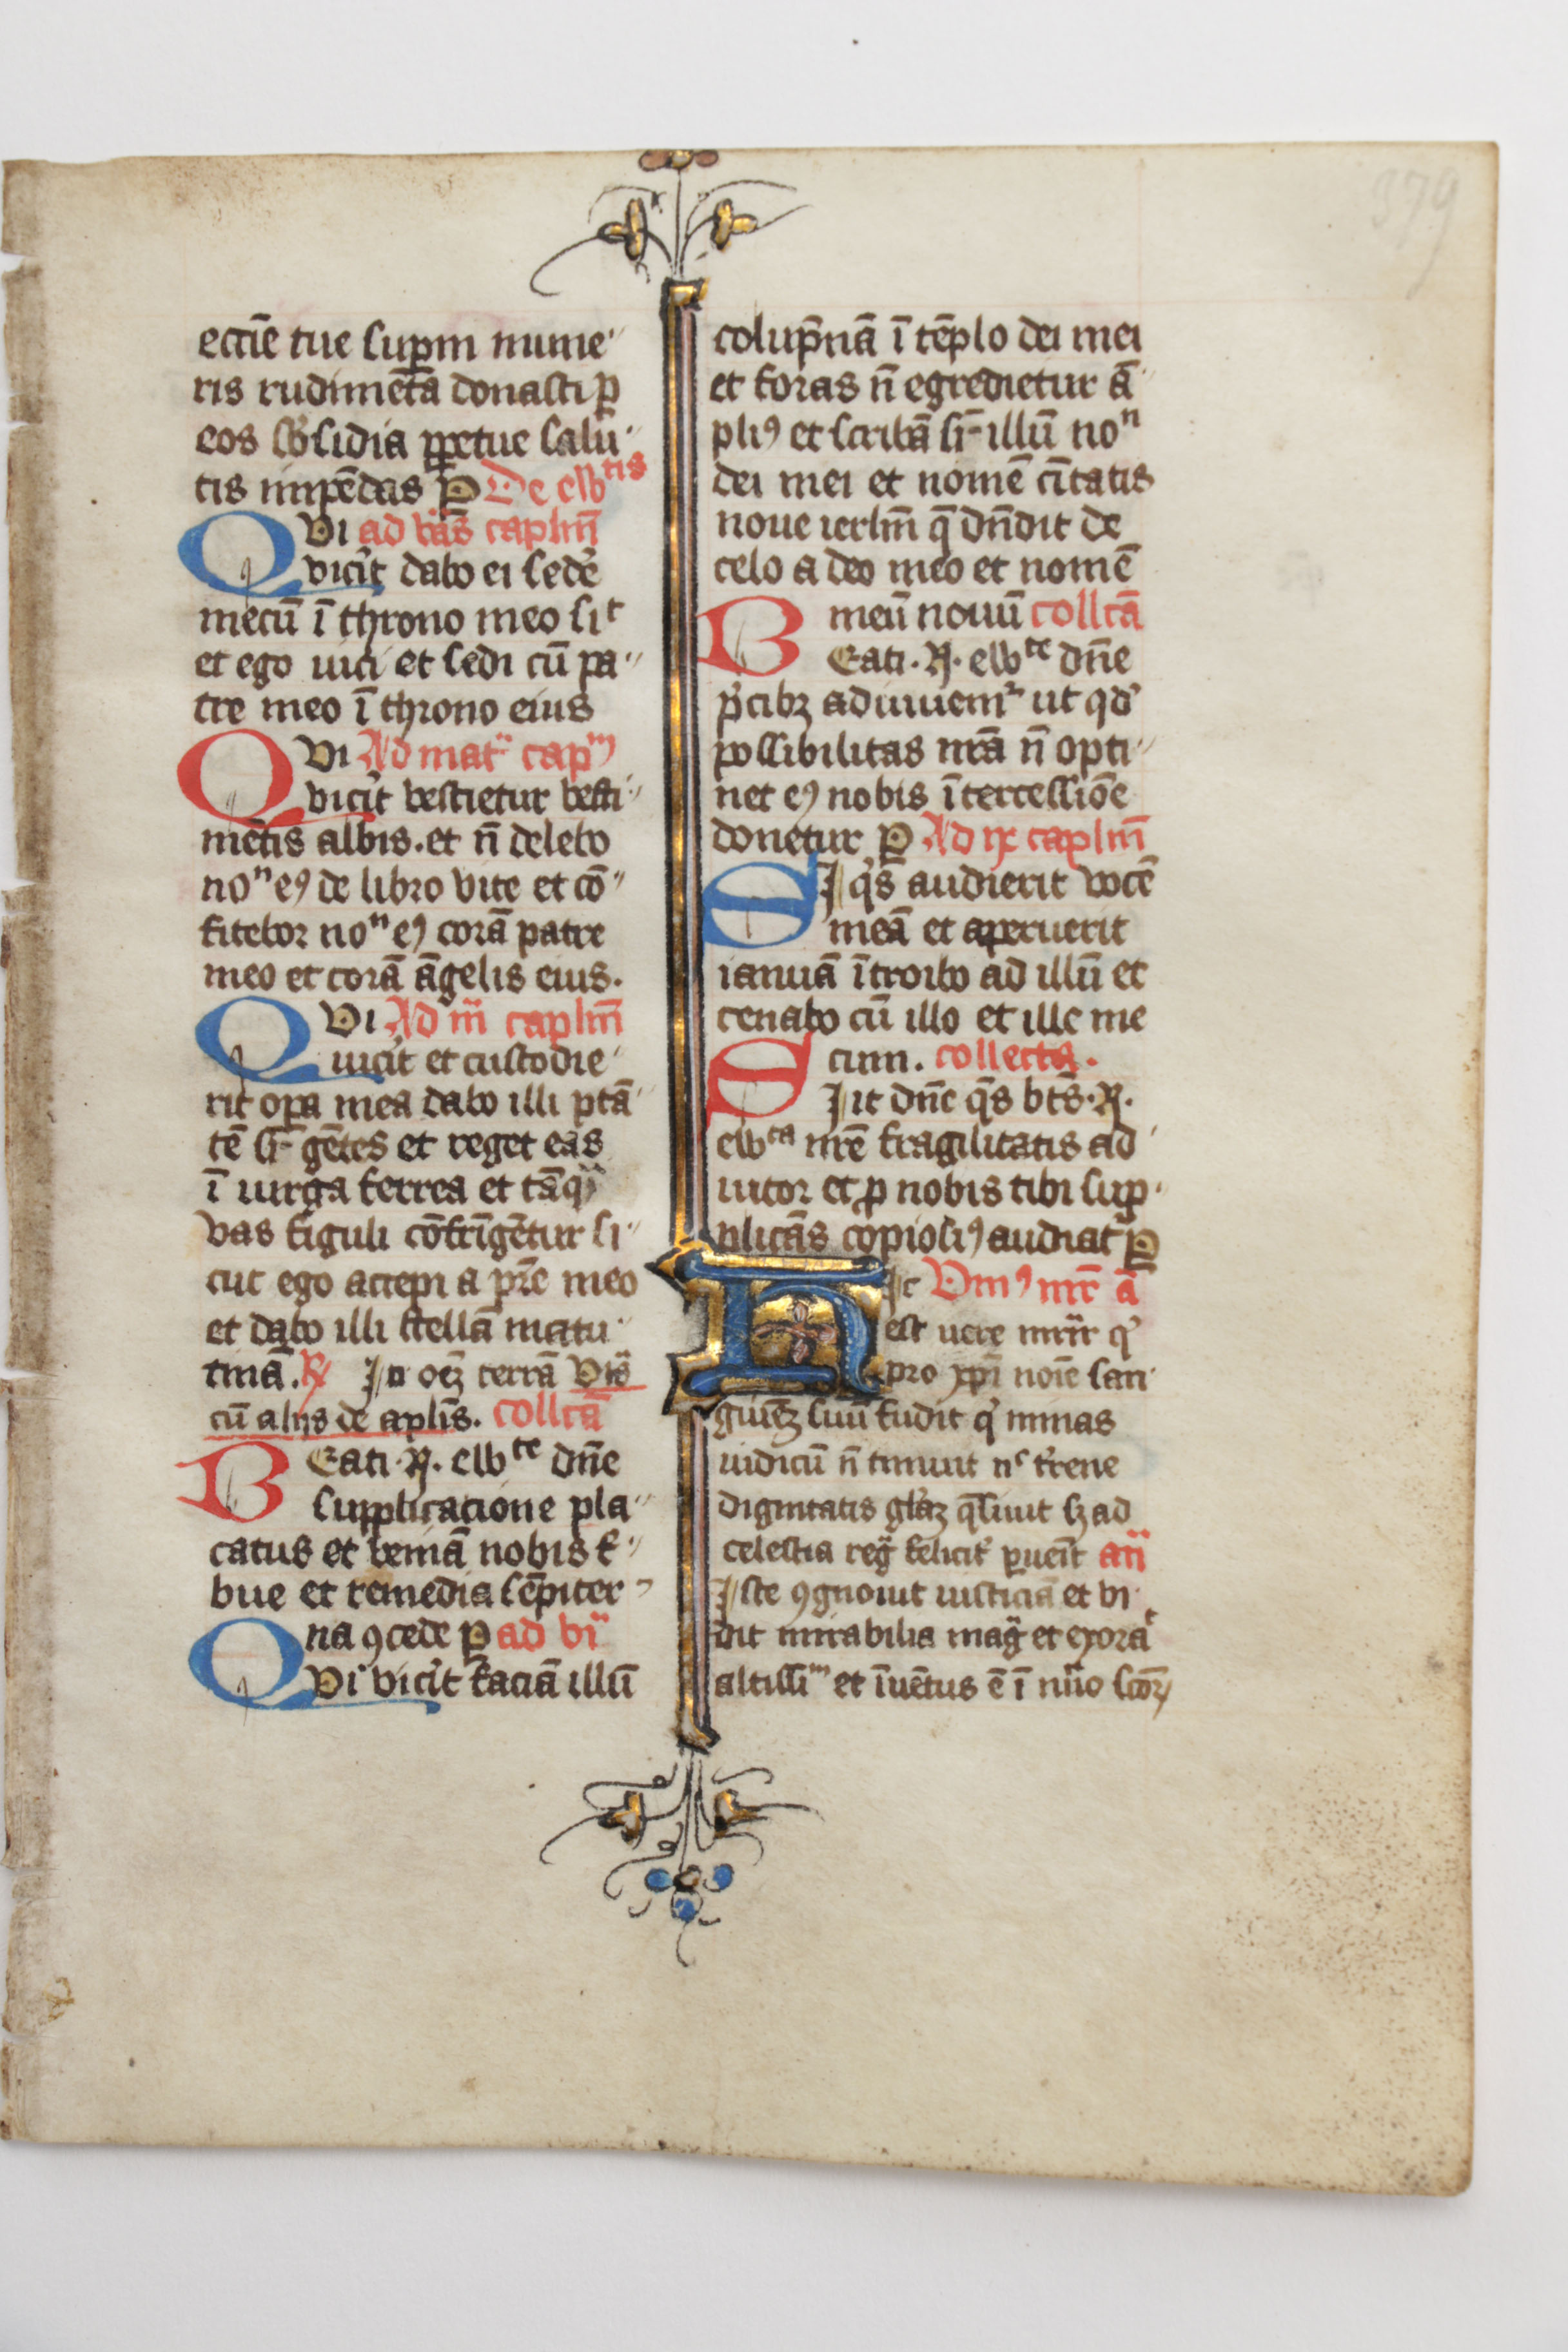 379
ecctie tue supm mune
ris rudimēta donasti ꝑ
eos sb̾sidia ꝑpetue salu
tis impēdas P De ewᵗⁱˢ
QVi ad vās caplm̄
vic̾it dabo ei sede̾
mecū ī throno meo siᵗ
et ego uici et sedi cū pa
tre meo ī throno eius
QVi Ad mat̾ capᵐ
vic̾it vestietur vesti
mētis albis. et n̄ delebo
noⁿ eꝰ de libro vite et cō
fitebor noⁿ eꝰ corā patre
meo et corā āgelis eius.
QVi Ad iii caplm̄
uic̾it et custodie
rit oꝑa mea dabo illi ptā
tē sr̄ gētes et reget eas
ī uirga ferrea et tāqᵃ
vas figuli cōfrīgētur si
cut ego accepi a pr̄e meo
et dabo illi stellā matu
tinā. ℟ In oēꝫ terrā
cū alijs de aplis. collcā
BEati .N. ewᵗᵉ dn̄e
supplicatione pla
catus et veniā nobis t̾
bue et remedia sēpiter
na ꝯcede P ad vi
QVi vic̾it faciā illū
colūpnā ī tēplo dei mei
et foras n̄ egredietur ā
pliꝰ et scribā sr̄ illū noⁿ
dei mei et nomē ciitatis
noue ierlm̄ q̄ dn̄dit de
celo a deo meo et nomē
meū nouū collcā
BEati .N. ewᵗᵉ dn̄e
p̾cibꝫ adiuuemʳ ut qd̾
possibilitas nr̄a n̄ opti
net eꝰ nobis ītercessiōe
donetur P Ad ix caplm̄
SI q̾s audierit vocē
meā et aperuerit
ianuā ītroibo ad illū et
cenabo cū illo et ille me
cum. collecta.
SIit dn̄e q̄s bt̄s .N.
ewᵗᵃ nr̄e fragilitatis ad
iutor et ꝓ nobis tibi sup
plicās copiosiꝰ audiat̾ P
HIc Vniꝰ mr̄ ā
est uere mrīr q̾
pro xp̄i noīe san
guinēꝫ suū fudit q̾ minas
iudicū n̄ timuit nᶜ t̾rene
dignitatis gl̄aꝫ q̄siuit sꝫ ad
celestia reg̾ felicit̾ ꝑuēit an̄
Iste ꝯgnouit iusticiā et vi
dit mirabilia mag̾ et exoraᵗ
altissiᵐ et īuētus ē ī nūo scōꝝ